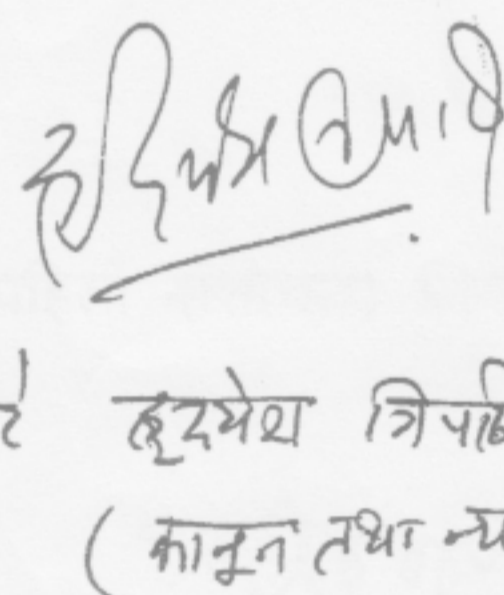 हृदयेश त्रिपा
हृदयेश त्रिपाठ
( कानून तथा न्य